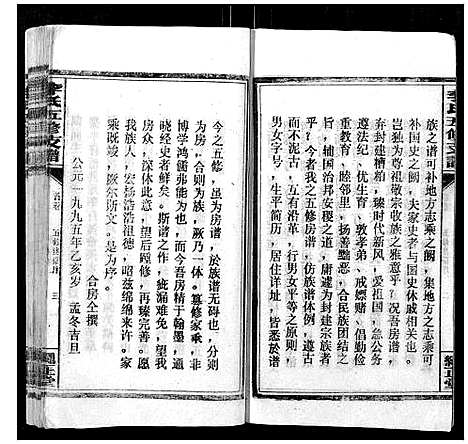 族之谱可补地方志乘之阙，集地方之志乘可
补国史之阙，夫家史者与国史休戚相关也，
岂独为尊祖敬宗收族之雅意乎？况吾房谱，
弃封建糟粕，臻时代新风，爱祖国，急公务
遵法纪、优生育、敦孝弟、戒嫖赌、倡勤俭
重教育、睦邻里，扬善黜恶，合民族团结之
旨，辅国治邦安稷之道，庸遽为封建宗族者
乎？今者我之五修房谱，仿族谱体例，遵古
而不泥古，互有沿革，行男女平等之原则，
男女字号，生平简历，居住详址，皆悉於谱
今之五修，虽为房谱，於族谱无碍也，分则
为房，合则为族，厥乃一体。篡修家乘，非
博学鸿儒弗能为也，而今吾房精于翰墨，
晓经史者鲜矣。斯谱之作，疵漏难免，望我
房众，深体此意，望后踵修，再臻完善。愿
我族人，宏扬浩浩祖德，昭兹绵绵来许。家
乘既竣，厥尔斯文。是为序。
合房仝撰
公元一九九五年乙亥岁 孟冬吉旦
李氏五修支谱
三